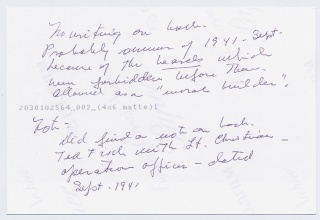 No writing on back.
Probably summer of 1941 - Sept.
because of the beards which
were forbidden before then.
Allowed as a "morale builder".
2030102564_002_(4x6 matte)1
Note -
Did find a note on back.
Ted Fisch with Lt. Christian -
operation officer - dated
Sept. 1941